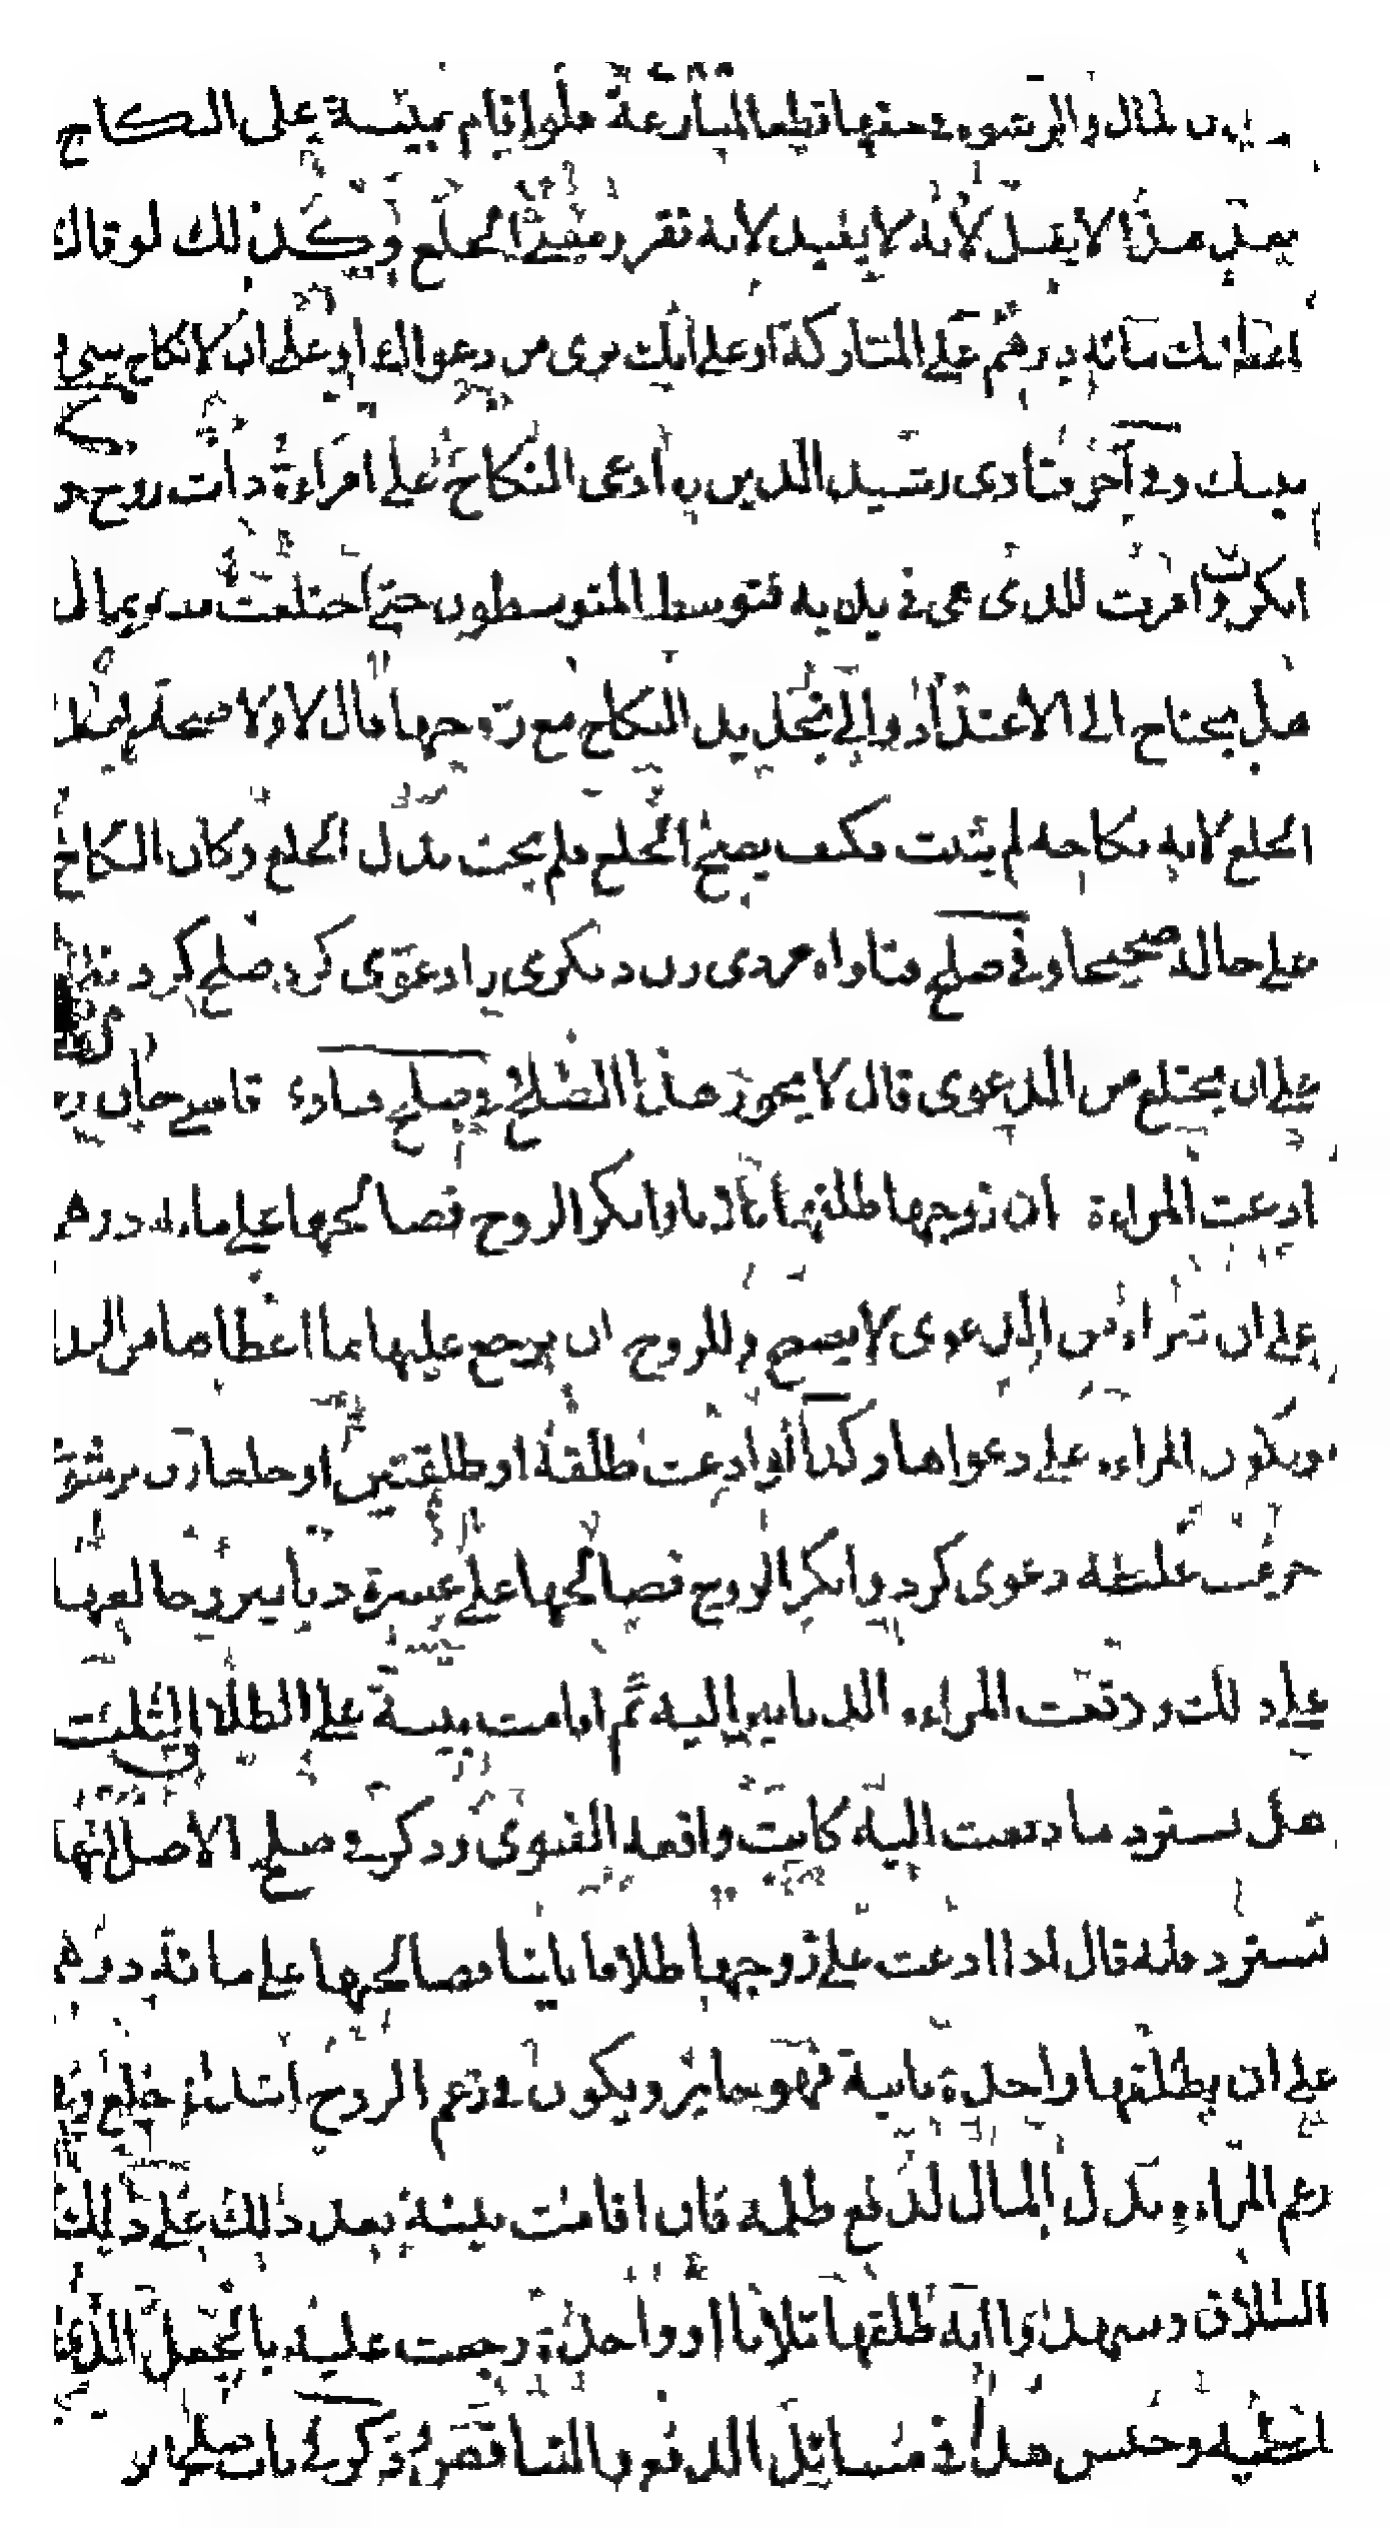 المال والرشوة في حقها قطعا للمنازعة فلو اقام بينة على النكاح
بعد هذا لا يقبل لأنه لا يفيد لانه تقرر معنى الخلع وكذلك لو قال
اعطيتك مائة درهم على المتاركة او على انك برى من دعواك او على ان لا نكاح بينى و
بينك وفي آخر فتاوى رشيد الدين ادعى النكاح على امراءة ذات زوج
انكرت و اقرت للذى هى في يديه فتوسط المتوسطون حتى اختلعت منه بمال
هل يحتاج الى الاعتداد والى تجديد النكاح مع زوجها قال لا ولا صحة لهذا
الخلع لانه نكاحه لم يثبت فكيف يصح الخلع فلم يجب بدل الخلع وكان النكاح
على حاله صحيحا وفي صلح فتاواه مردى زن ديكرى را دعوى كرد صلح كرد
على ان يختلع من الدعوى قال لا يجوز هذا الصلح وفي صلح فتاوى قاضى خان
ادعت المراءة ان زوجها طلقها ثلاثا وانكر الزوج فصالحها على مائة درهم
على ان تبراء من الدعوى لا يصح وللزوج ان يرجع عليها بما اعطاها من البدل
ويكون المراءة على دعواها وكذا لو ادعت طلقة او طلقتين او خلعا زن برشوى
حرمت غليظه دعوى كرد وانكر الزوج فصالحها على عشرة دنانير
على ذلك ودفعت المراءة الدنانير اليه ثم اقامت بينة على الطلاق الثلث
هل تسترد ما دفعت اليه كانت واقعة الفتوى وذكر في صلح الاصل انها
تسترد فانه قال اذا ادعت على زوجها طلاقا بائنا فصالحها على مائة درهم
على ان يطلقها واحدة بائنة فهو جائز ويكون في زعم الزوج ابتداء خلع وفي
زعم المراءة بدل المال لدفع ظلمه فان اقامت بينة بعد ذلك على ذلك
الطلاق وشهدوا انه طلقها ثلاثا او واحدة رجعت عليه بالجعل الذى
اعطيته وجنس هذا في مسائل الدفع والتناقض ذكر في باب صلح